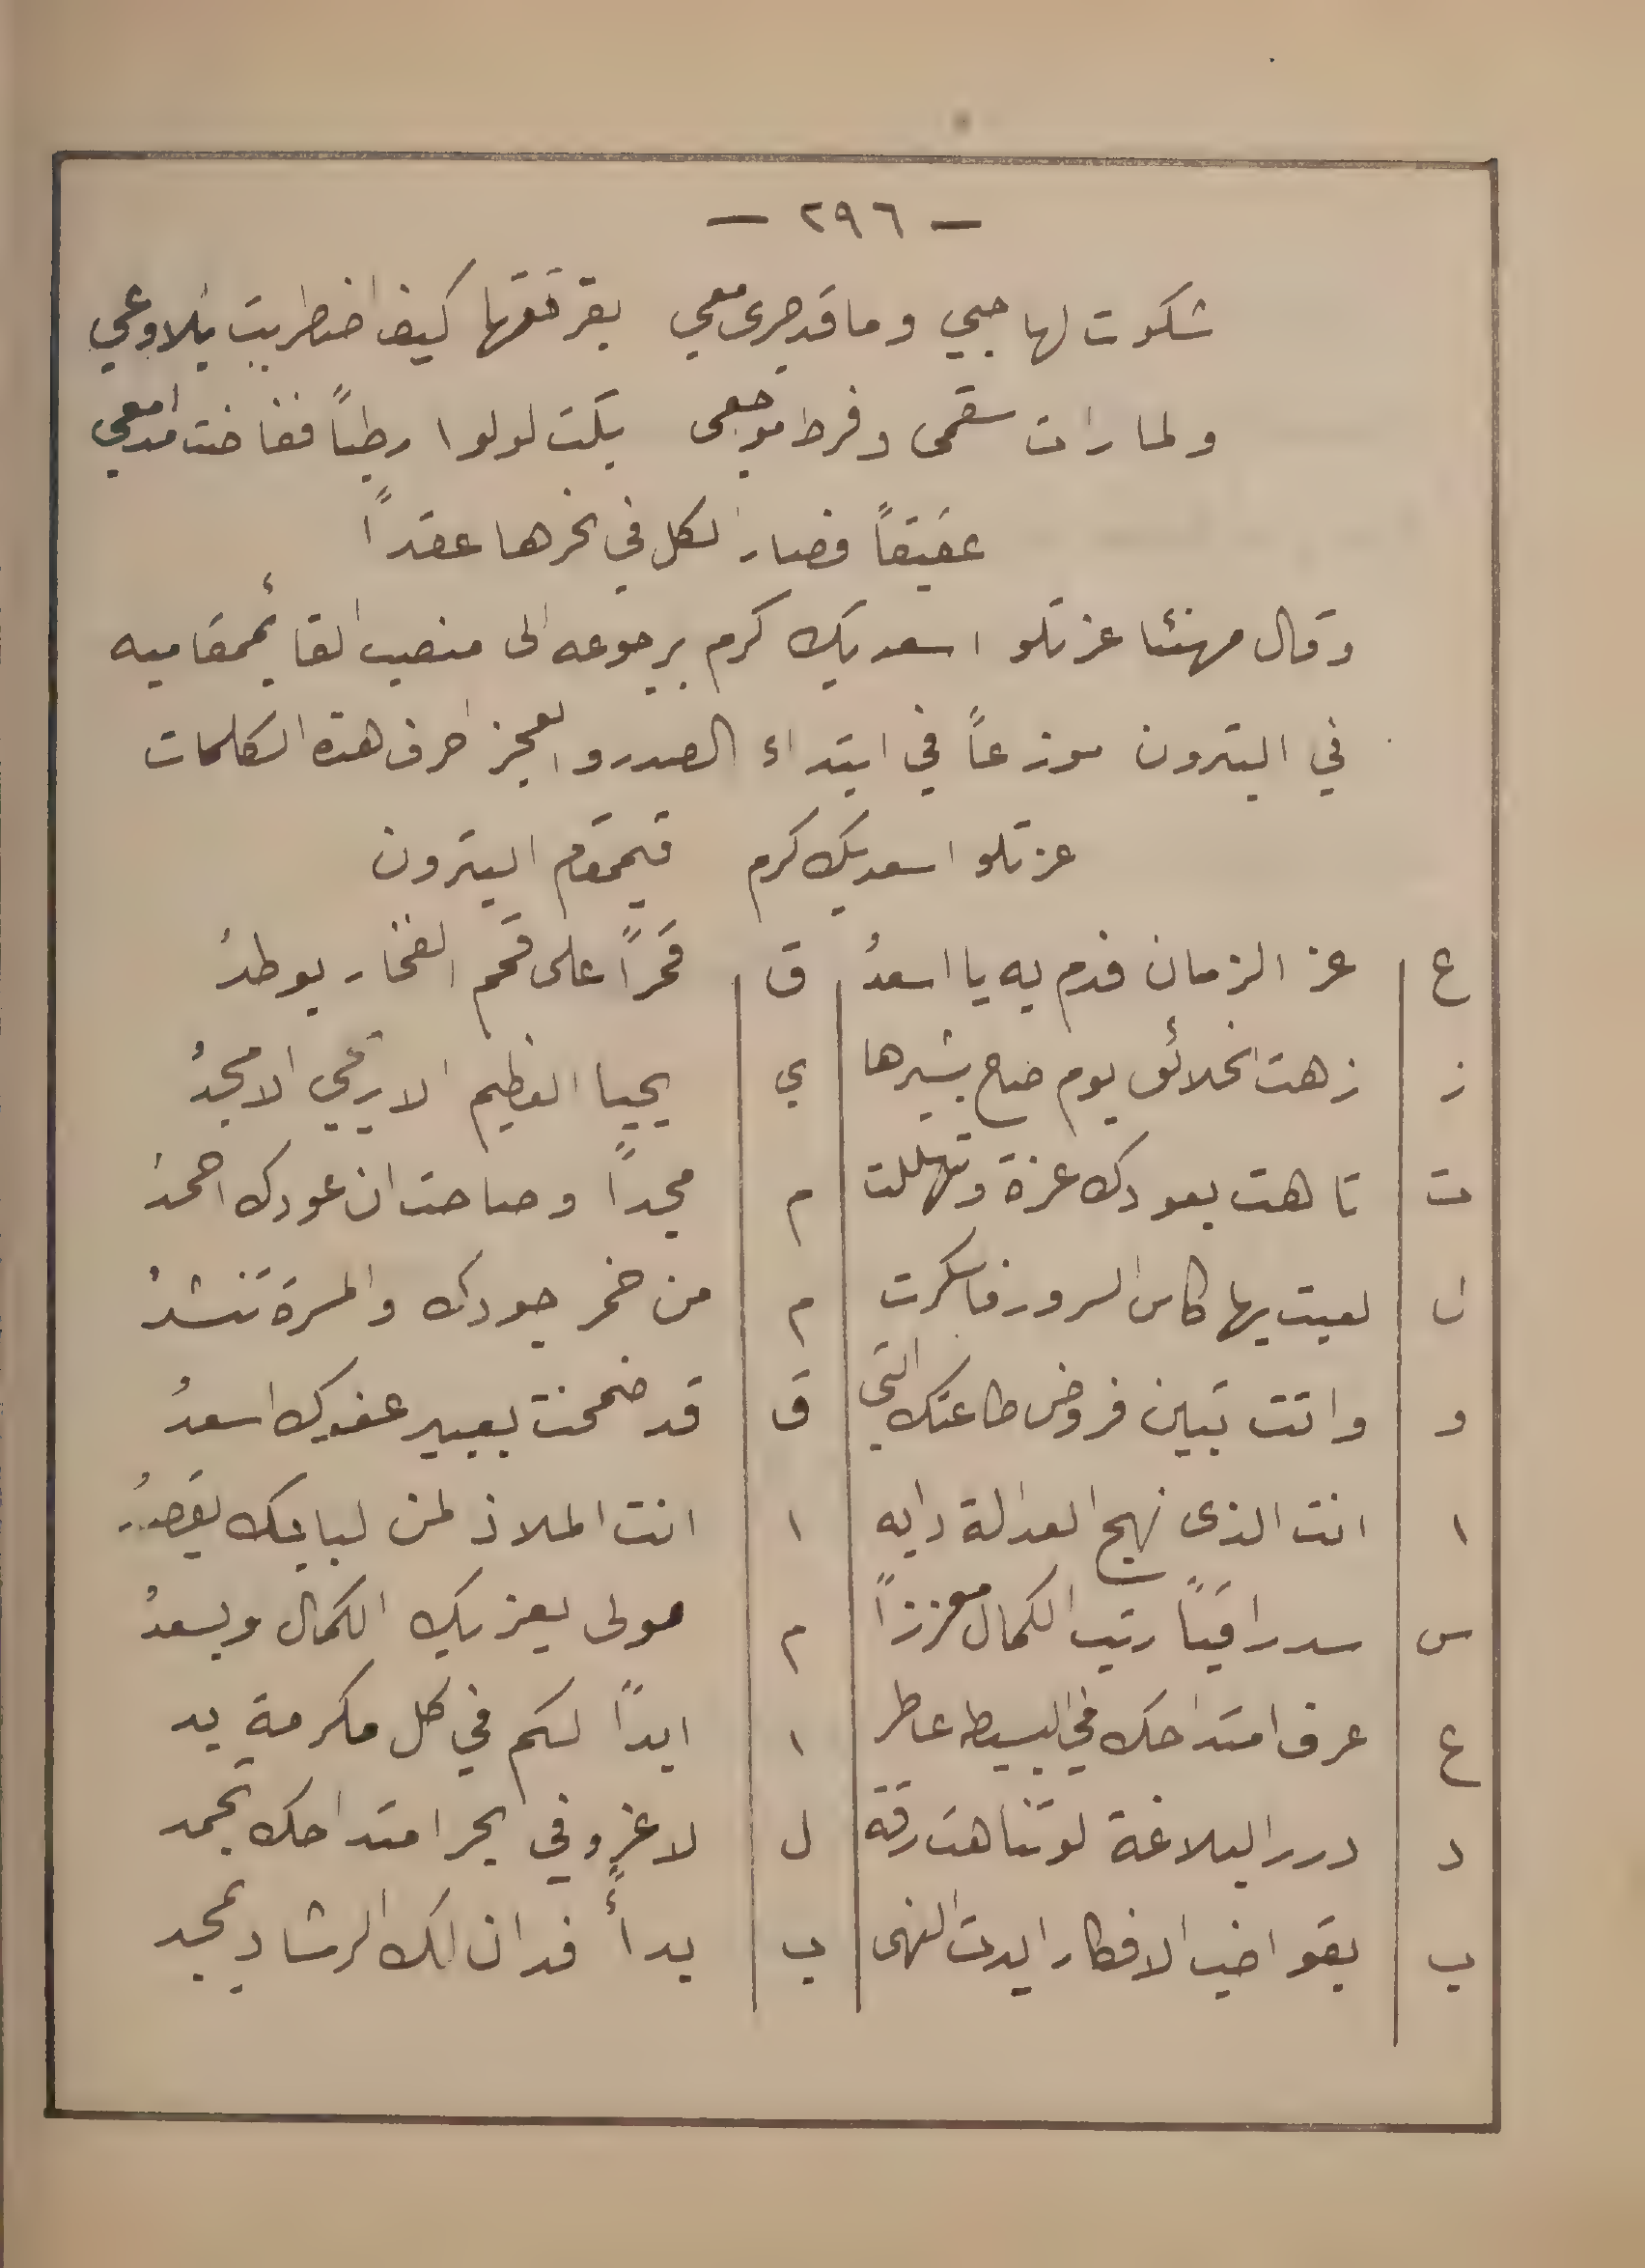 — ٢٩٦ —
شكوت لها حبي وما قد جرى معي بفرقتها كيف اضطربت بلا وعي
ولما رات سقمى وفرط توجعى بكت لولوا رطباً ففاضت مدامعي
عقيقاً فصار الكل في نحرها عقداً
وقال مهنئا عزتلو اسعد بك كرم برجوعه الى منصب القائمقاميه
في البترون موزعاً في ابتداء الصدر والعجز احرف هذه الكلمات
عزتلو اسعد بك كرم قيمقام البترون
ع عز الزمان فدم به يا اسعدُ ق قمراً على قمم الفخار يوطدُ
ز زهت الخلائق يوم صاح بشيرها ي يحيا العظيم الاريحي الامجدُ
ت تاهت بعودك عزة وتهللت م مجداً وصاحت ان عودك احمدُ
ل لعبت بها كاس السرور فاسكرت م من خمر جودك والمسرة تنشدُ
و واتت تبين فروض طاعتك التي ق قد ضمخت بعبير عفوك اسعدُ
ا انت الذى نهج العدالة دابه ا انت الملاذ لمن لبابك يقصدُ
س سد راقياً رتب الكمال معززاً م مولى يعز بك الكمال ويسعدُ
ع عرف امتداحك في البسيطه عاطر ا ابداً لكم في كل مكرمة يد
د درر البلاغة لو تناهت رقة ل لا غرو في بحر امتداحك تجمد
ب بقواضب الافكار ايدت النهى ب بدأً فدان لك الرشاد يمجد